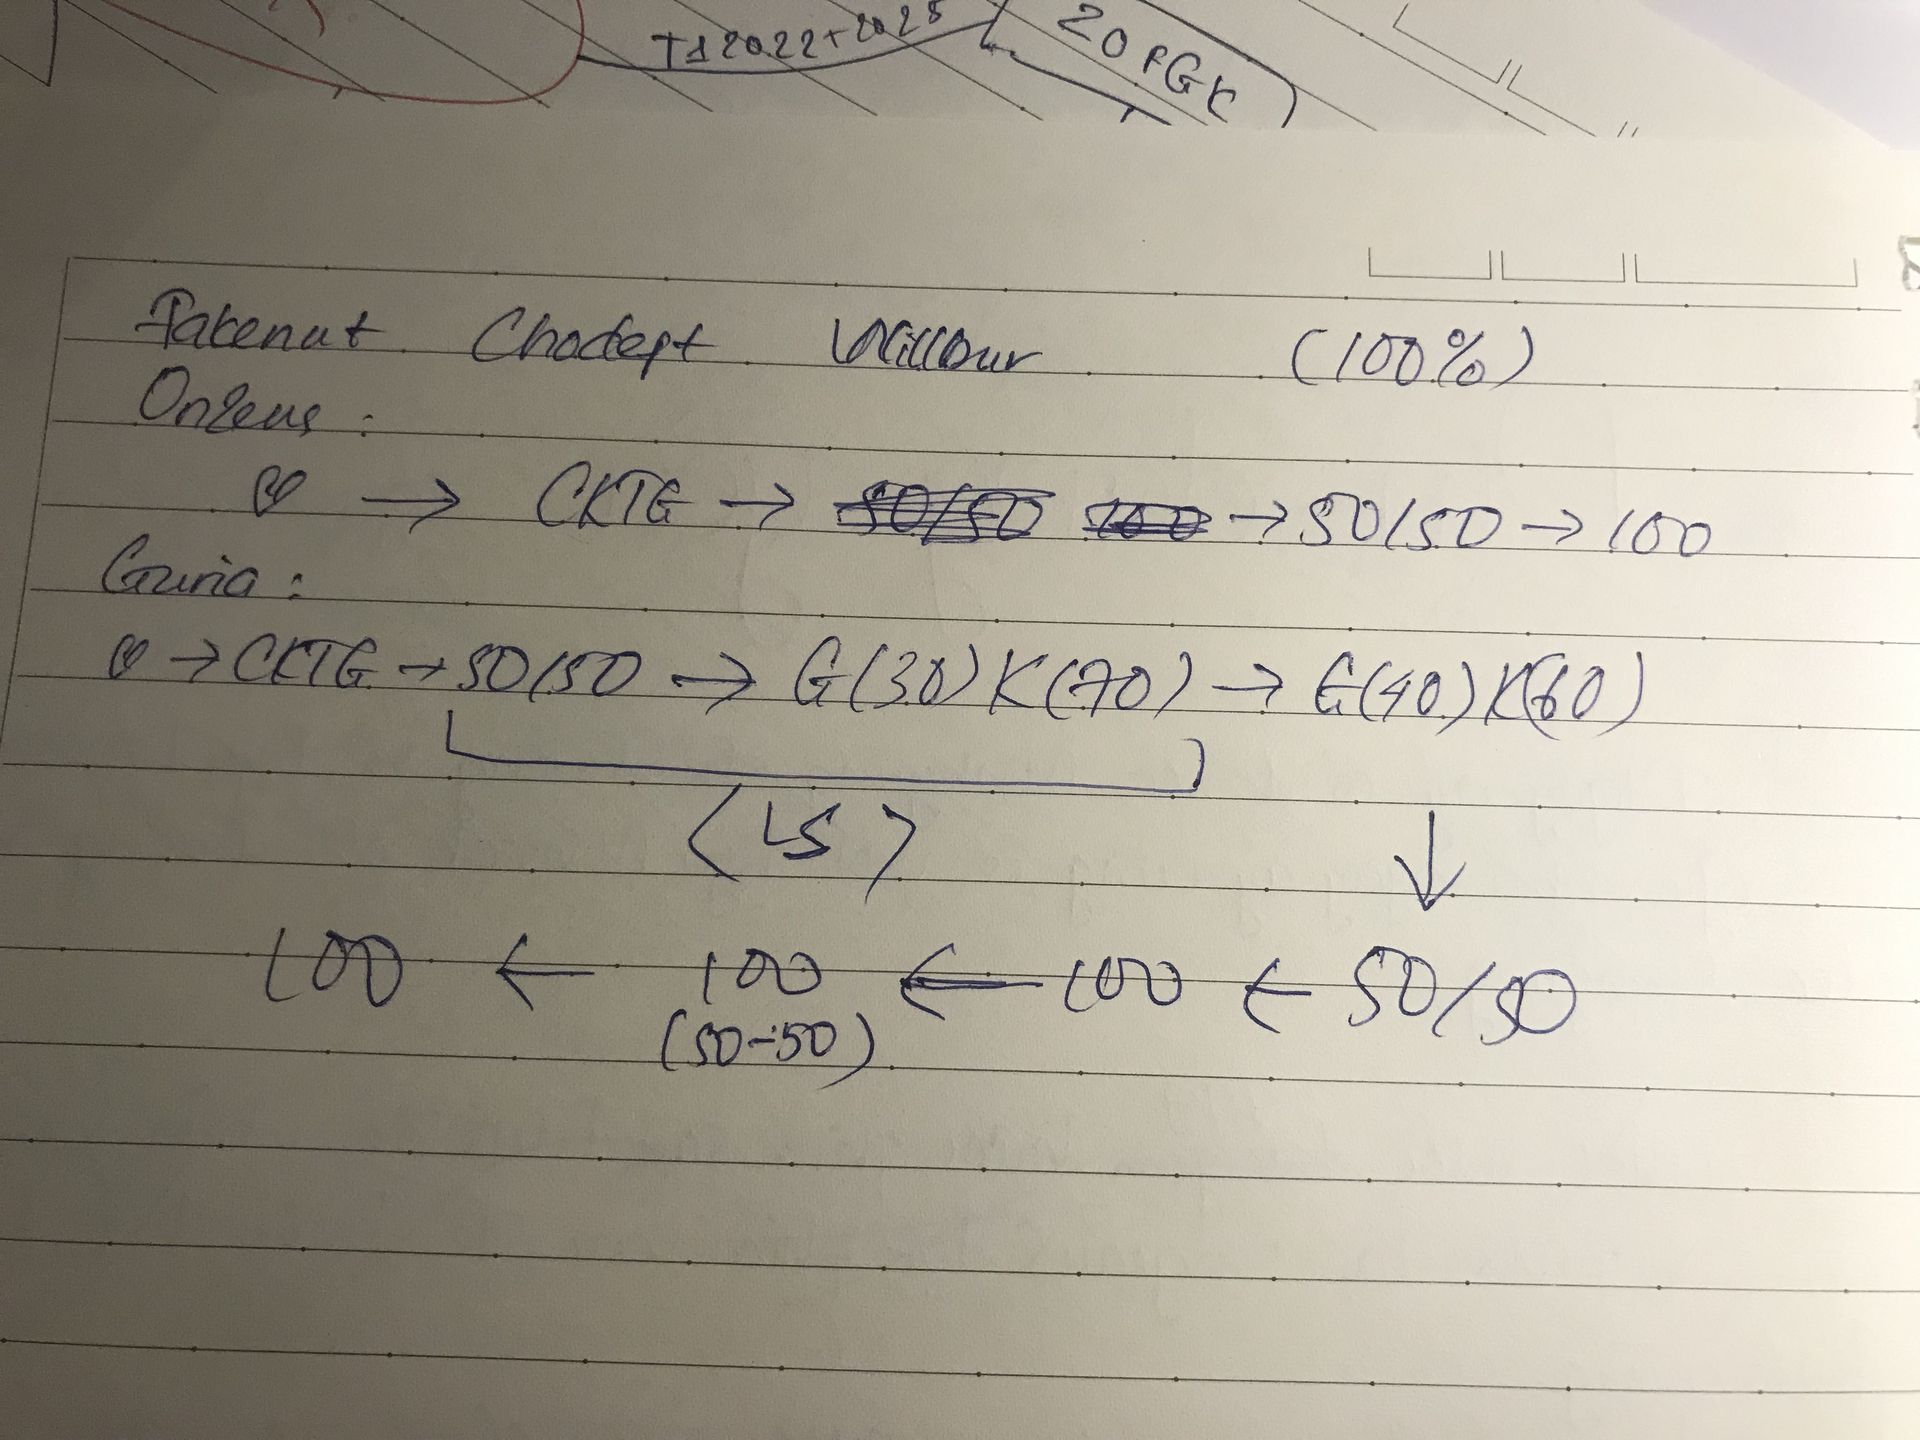 T1 2022+2025
ZOFGK
Fakenut Chodept Willour (100%)
Onzeus :
→ CKTG → 50/50 100 → 50/50 → 100
Guria :
→ CKTG → 50/50 → G(30) K(70) → G(40) K(60)
(LS) ↓
100 ← 100 ← 100 ← 50/50
(50-50)